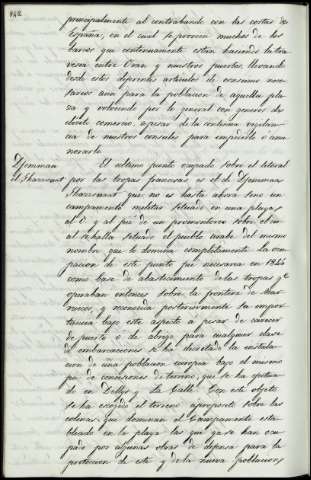 142
principalmente al contrabando con las costas de
España, en el cual se proveen muchos de los
barcos que continuamente están haciendo la tra-
vesía entre Oran y nuestros puertos, llevando
desde estos depósitos artículos de consumo nece-
sarios aun para la poblacion de aquella pla-
za y volviendo por lo general con generos de
ilícito comercio, a pesar de la continua vigilan-
cia de nuestros consules para impedirlo ó ami-
norarlo.
Djemman El último punto ocupado sobre el litoral
el Ghazaouat por las tropas francesas es el de Djemman
Ghazaouat que no es hasta ahora sino un
campamento militar situado en una playa
al O. y al pié de un promontorio sobre el cu-
al se halla situado el pueblo arabe del mismo
nombre que lo domina completamente. La ocu-
pacion de este punto fué necesaria en 1844
como base de abastecimiento de las tropas qe
operaban entonces sobre la frontera de Mar-
ruecos, y reconocida posteriormente su impor-
tancia bajo este aspecto a pesar de carecer
de puerto ó de abrigo para cualquier clase
de embarcaciones se ha decretado la instala-
cion de una poblacion europea bajo el mismo
pie de concesiones de terreno, que se ha efectua-
do en Dellys y La Calle. Con este objeto
se ha escogido el terreno aproposito sobre las
colinas que dominan el Campamento esta-
blecido en la playa las que ya se han ocu-
pado por algunas obras de defensa para la
proteccion de este y de la nueva poblacion,